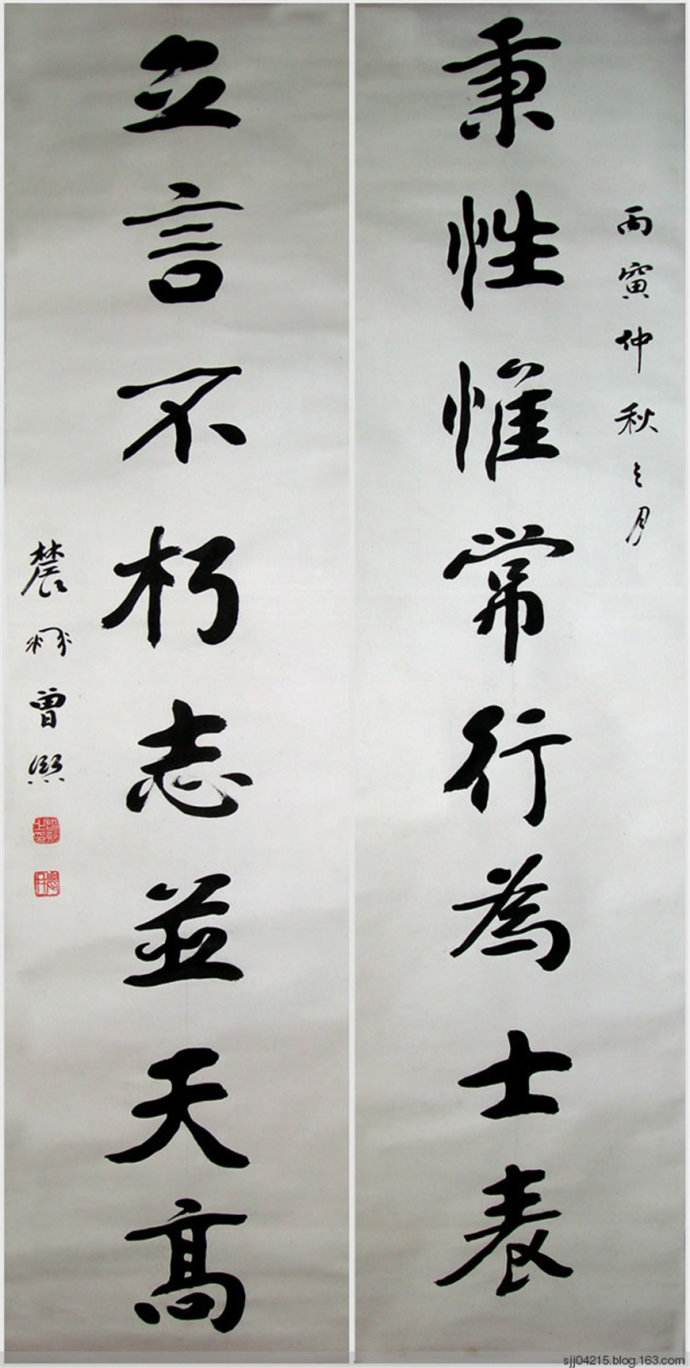 丙寅仲秋之月
秉性惟常行為士表
立言不朽志並天高
農髯曾熙
sjj04215.blog.163.com